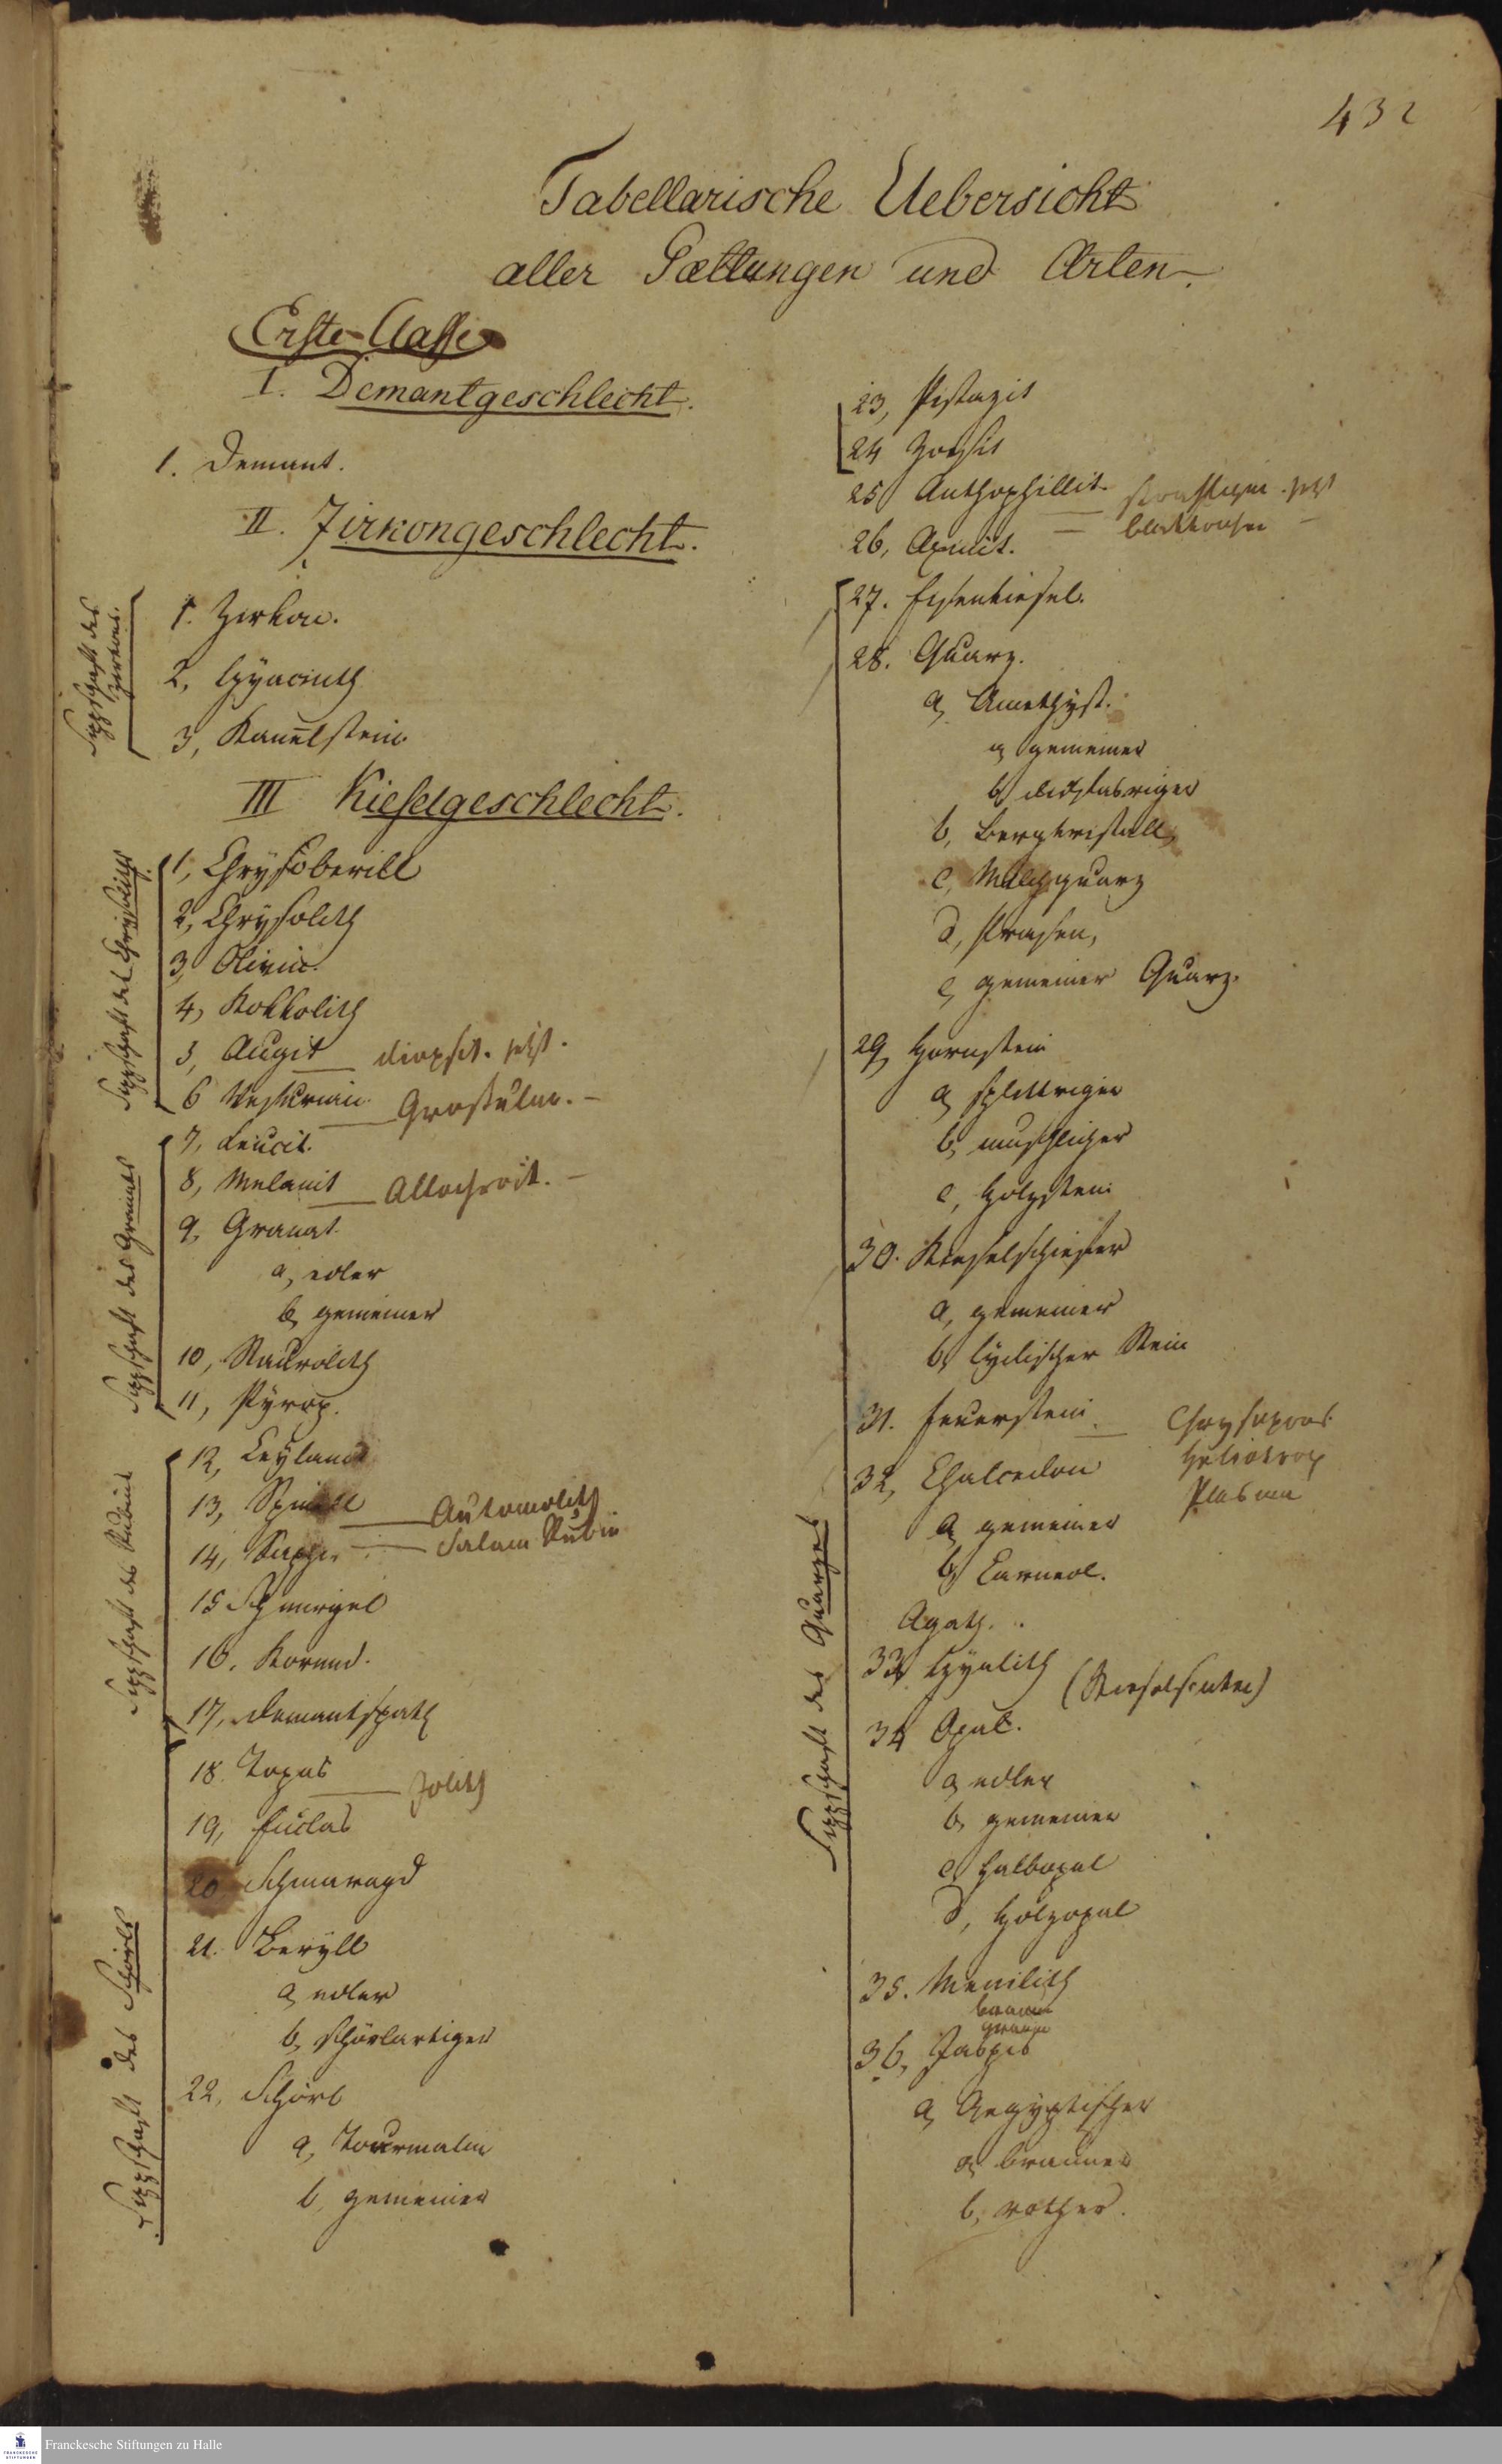 432
Tabellarische Uebersicht
aller Gattungen und Arten.
Erste Classe
I. Demantgeschlecht.
1. Demant.
II. Zirkongeschlecht.
Sippschaft des
Zirkons.
1. Zirkon.
2, Hyacinth
3, Kanelstein
III Kieselgeschlecht.
Sippschaft des Chrysoliths
1, Chrysoberill
2, Chrysolith
3, Olivin.
4, Kokkolith
5, Augit — diopsit. jetzt.
6 Vesuvian — Grossular. —
Sippschaft des Granats
7, Leucit.
8, Melanit — Allochroit. —
9, Granat.
a, edler
b, gemeiner
10, Staurolith
11, Pyrop.
Sippschaft des Rubins
12, Ceylanit
13, Spinell — Automolith
14, Saphir — Salam Rubin
15 Schmirgel
16. Korund.
17, Demantspath
Sippschaft des Schörls
18. Topas — Jolith
19, Euclas
20 Schmaragd
21. Beryll
a, edler
b, schörlartiger
22, Schörl
a, Tourmalin
b, gemeiner
23, Pistazit
24 Zoisit
25, Anthophillit — strahliger. jetzt
26, Axinit. — blättricher —
Sippschaft des Quarzes
27. Eisenkiesel.
28. Quarz.
a, Amethyst.
a, gemeiner
b, dickfasriger
b, Bergkristall,
c, Milchquarz
d, Prasen,
e, gemeiner Quarz.
29, Hornstein
a, splittriger
b, muschlicher
c, Holzstein
30. Kieselschiefer
a, gemeiner
b, lydischer Stein
31. Feuerstein. — Chrysopras.
Heliotrop
32, Chalcedon
Plasma
a, gemeiner
b, Carneol.
Agath.
33, Hyalith
(Kieselsinter)
34 Opal.
a, edler
b, gemeiner
c, Halbopal
d, Holzopal
35. Menilith
brauner
grauer
36, Jaspis
a, Aegyptischer
a, brauner
b, rother.
Franckesche Stiftungen zu Halle
FRANCKESCHE
STIFTUNGEN